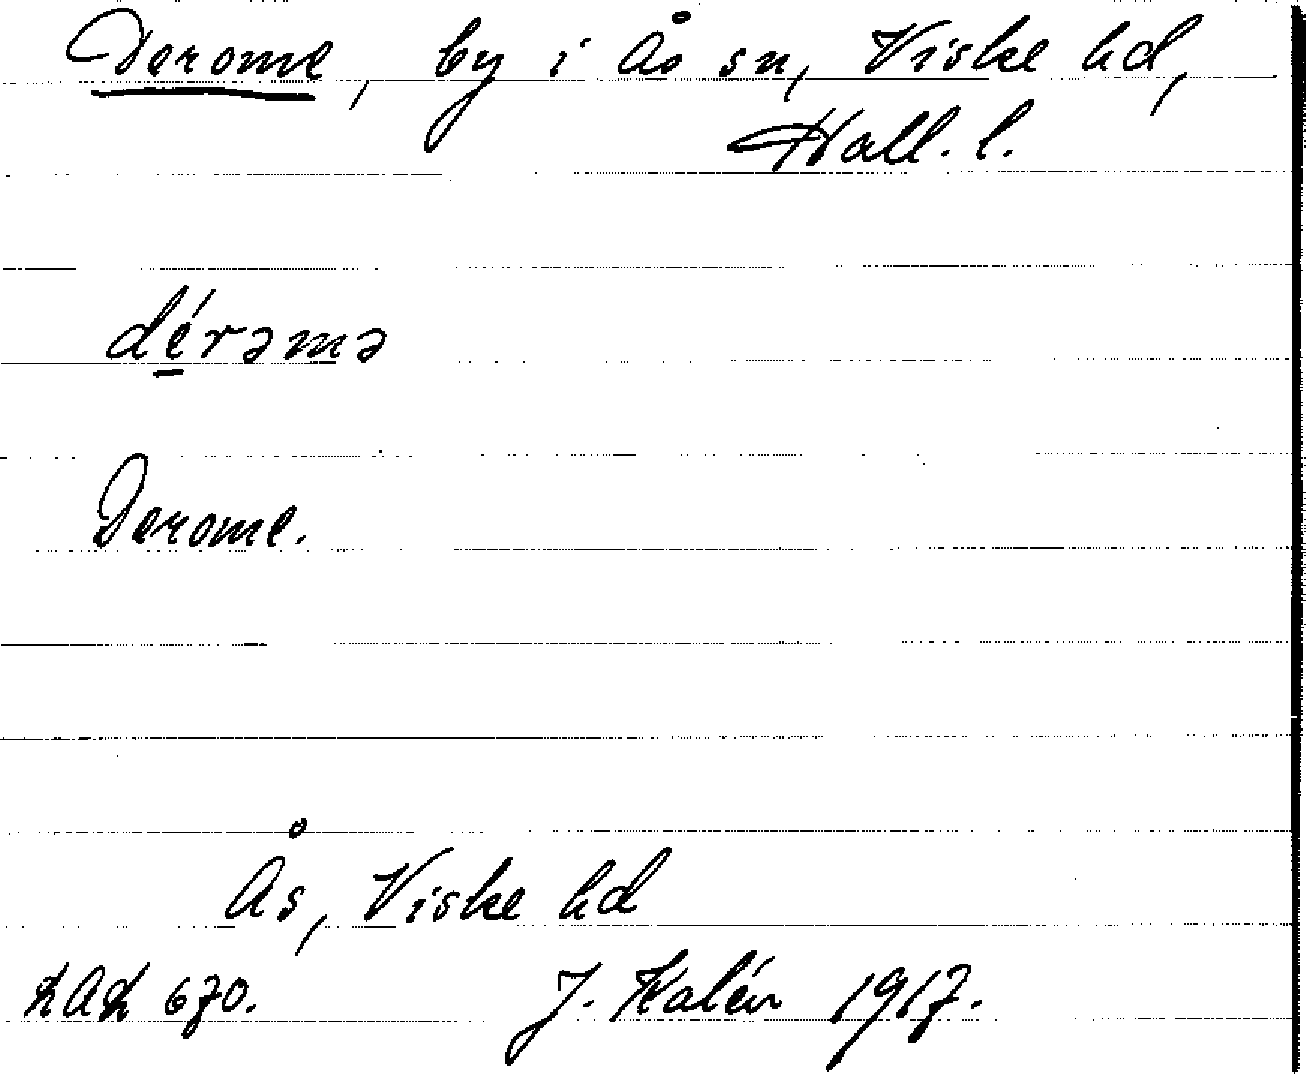 Derome, by i Ås sn, Viske hd,
Hall. l.
dérəmə
Derome.
Ås, Viske hd
670.
J. Kalén 1917.